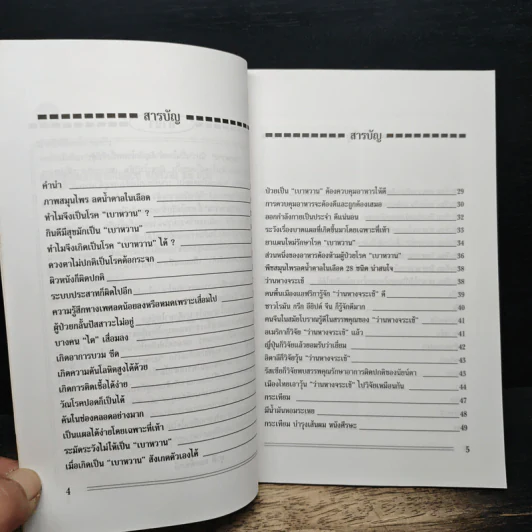 สารบัญ
คำนำ
ภาพสมุนไพร ลดน้ำตาลในเลือด
ทำไมจึงเป็นโรค "เบาหวาน" ?
กินดีมีสุขมักเป็น "เบาหวาน"
ทำไมจึงเกิดเป็นโรค "เบาหวาน" ได้ ?
ดวงตาไม่ปกติเป็นโรคต้อกระจก
ผิวหนังก็ผิดปกติ
ระบบประสาทก็ผิดไปอีก
ความรู้สึกทางเพศลดน้อยลงหรือหมดเพราะเสื่อมไป
ผู้ป่วยกลั้นปัสสาวะไม่อยู่
บางคน "ไต" เสื่อมลง
เกิดอาการบวม ซีด
เกิดความดันโลหิตสูงได้ด้วย
เกิดการติดเชื้อได้ง่าย
วัณโรคปอดก็เป็นได้
คันในช่องคลอดอย่างมาก
เป็นแผลได้ง่ายโดยเฉพาะที่เท้า
ระมัดระวังไม่ให้เป็น "เบาหวาน"
เมื่อเกิดเป็น "เบาหวาน" สังเกตตัวเองได้
4
สารบัญ
ป่วยเป็น "เบาหวาน" ต้องควบคุมอาหารให้ดี 29
การควบคุมอาหารจะต้องดีและถูกต้องเสมอ 30
ออกกำลังกายเป็นประจำ ดีแน่นอน 32
ระวังเรื่องบาดแผลที่เกิดขึ้นมาโดยเฉพาะที่เท้า 33
ยาแผนใหม่รักษาโรค "เบาหวาน" 34
ส่วนหนึ่งของอาหารต้องห้ามผู้ป่วยโรค "เบาหวาน" 36
พืชสมุนไพรลดน้ำตาลในเลือด 28 ชนิด น่าสนใจ 37
ว่านหางจระเข้ 38
คนพื้นเมืองแอฟริการู้จัก "ว่านหางจระเข้" ดี 38
ชาวโรมัน กรีก อียิปต์ จีน ก็รู้จักดีมาก 40
คนจีนในสมัยโบราณรู้ดีในสรรพคุณของ "ว่านหางจระเข้" 41
อเมริกาก็วิจัย "ว่านหางจระเข้" แล้ว 41
ญี่ปุ่นก็วิจัยแล้วยอมรับว่าเยี่ยม 42
อิตาลีก็วิจัยวุ้น "ว่านหางจระเข้" 42
รัสเซียก็วิจัยพบสรรพคุณรักษาอาการผิดปกติของนัยน์ตา 42
เมืองไทยเอาวุ้น "ว่านหางจระเข้" ไปวิจัยเหมือนกัน 44
กระเทียม
มีน้ำมันหอมระเหย 48
กระเทียม บำรุงเส้นผม หนังศีรษะ 49
5